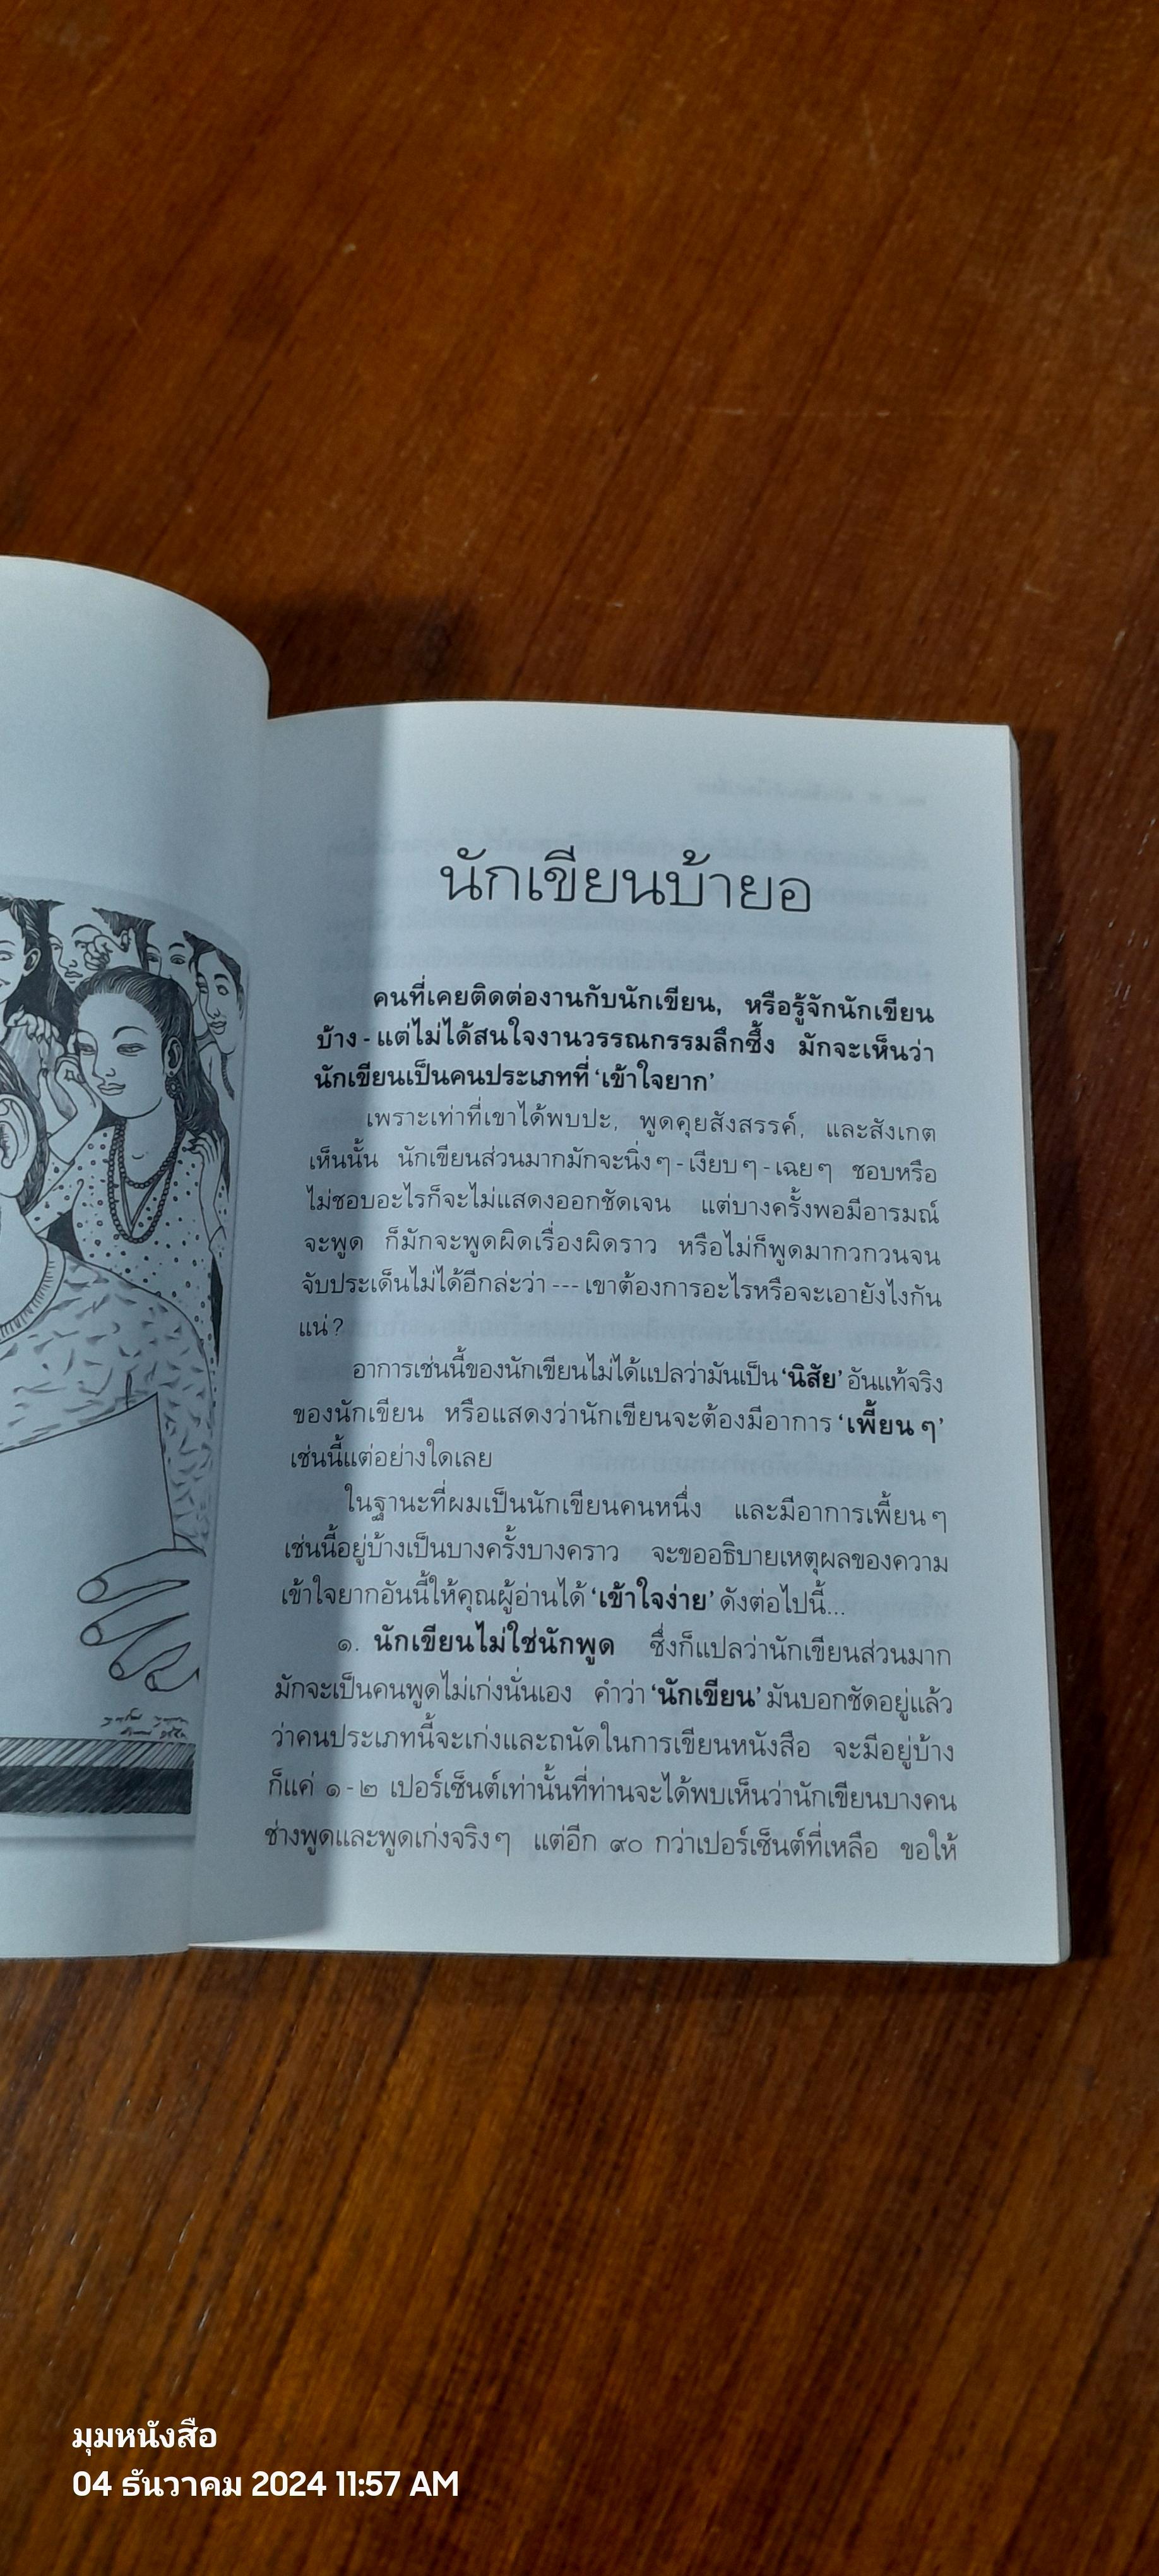 นักเขียนบ้ายอ
คนที่เคยติดต่องานกับนักเขียน, หรือรู้จักนักเขียน
บ้าง - แต่ไม่ได้สนใจงานวรรณกรรมลึกซึ้ง มักจะเห็นว่า
นักเขียนเป็นคนประเภทที่ ‘เข้าใจยาก’
เพราะเท่าที่เขาได้พบปะ, พูดคุยสังสรรค์, และสังเกต
เห็นนั้น นักเขียนส่วนมากมักจะนิ่งๆ - เงียบๆ - เฉยๆ ชอบหรือ
ไม่ชอบอะไรก็จะไม่แสดงออกชัดเจน แต่บางครั้งพอมีอารมณ์
จะพูด ก็มักจะพูดผิดเรื่องผิดราว หรือไม่ก็พูดมากวกวนจน
จับประเด็นไม่ได้อีกล่ะว่า --- เขาต้องการอะไรหรือจะเอายังไงกัน
แน่?
อาการเช่นนี้ของนักเขียนไม่ได้แปลว่ามันเป็น ‘นิสัย’ อันแท้จริง
ของนักเขียน หรือแสดงว่านักเขียนจะต้องมีอาการ ‘เพี้ยนๆ’
เช่นนี้แต่อย่างใดเลย
ในฐานะที่ผมเป็นนักเขียนคนหนึ่ง และมีอาการเพี้ยนๆ
เช่นนี้อยู่บ้างเป็นบางครั้งบางคราว จะขออธิบายเหตุผลของความ
เข้าใจยากอันนี้ให้คุณผู้อ่านได้ ‘เข้าใจง่าย’ ดังต่อไปนี้...
๑. นักเขียนไม่ใช่นักพูด ซึ่งก็แปลว่านักเขียนส่วนมาก
มักจะเป็นคนพูดไม่เก่งนั่นเอง คำว่า ‘นักเขียน’ มันบอกชัดอยู่แล้ว
ว่าคนประเภทนี้จะเก่งและถนัดในการเขียนหนังสือ จะมีอยู่บ้าง
ก็แค่ ๑-๒ เปอร์เซ็นต์เท่านั้นที่ท่านจะได้พบเห็นว่านักเขียนบางคน
ช่างพูดและพูดเก่งจริงๆ แต่อีก ๙๐ กว่าเปอร์เซ็นต์ที่เหลือ ขอให้
มุมหนังสือ
04 ธันวาคม 2024 11:57 AM